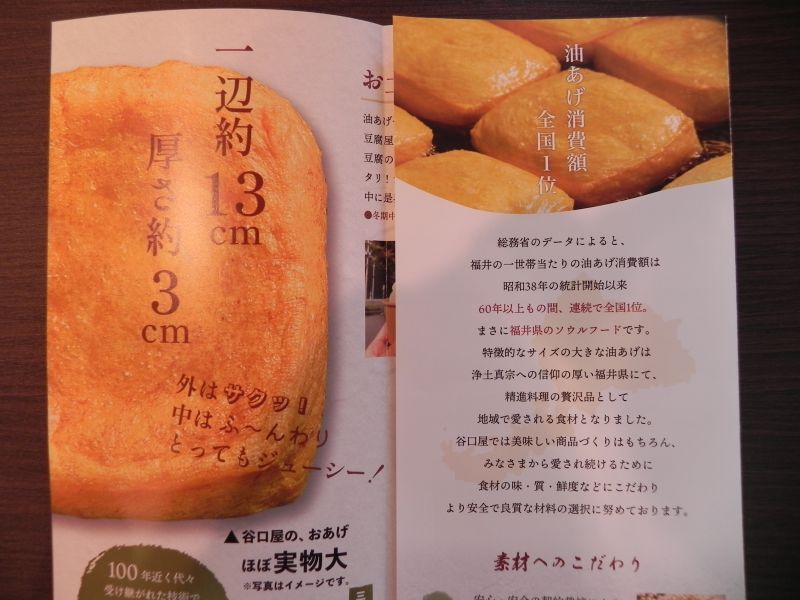 一辺約13cm
厚さ約3cm
外はサクッ!
中はふ〜んわり
とってもジューシー!
▲谷口屋の、おあげ
ほぼ実物大
※写真はイメージです。
100年近く代々
受け継がれた技術で
三
お
油あげ
豆腐屋
豆腐の
タリ!
中に是
●冬期中
油あげ消費額
全国1位
総務省のデータによると、
福井の一世帯当たりの油あげ消費額は
昭和38年の統計開始以来
60年以上もの間、連続で全国1位。
まさに福井県のソウルフードです。
特徴的なサイズの大きな油あげは
浄土真宗への信仰の厚い福井県にて、
精進料理の贅沢品として
地域で愛される食材となりました。
谷口屋では美味しい商品づくりはもちろん、
みなさまから愛され続けるために
食材の味・質・鮮度などにこだわり
より安全で良質な材料の選択に努めております。
素材へのこだわり